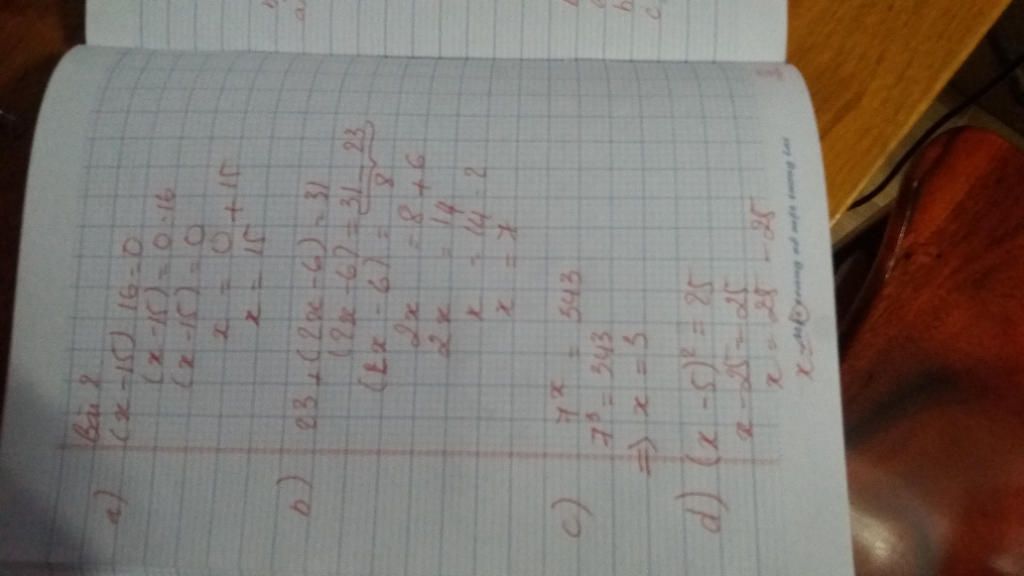 Bài 2
a) (x - 15) 16 = 0
(x - 15) = 0 : 16
(x - 15) = 0
x = 0 + 15
x = 15
b) 23 + (2x - 6) = 31
(2x - 6) = 31 - 23
(2x - 6) = 8
2x = 8 + 6
2x = 14
x = 14 : 2
x = 7
c) 7ˣ = 343
7³ = 343
=> x = 3
d) (x - 5)² = 25
x - 25 = 25
x = 25 - 25
x =